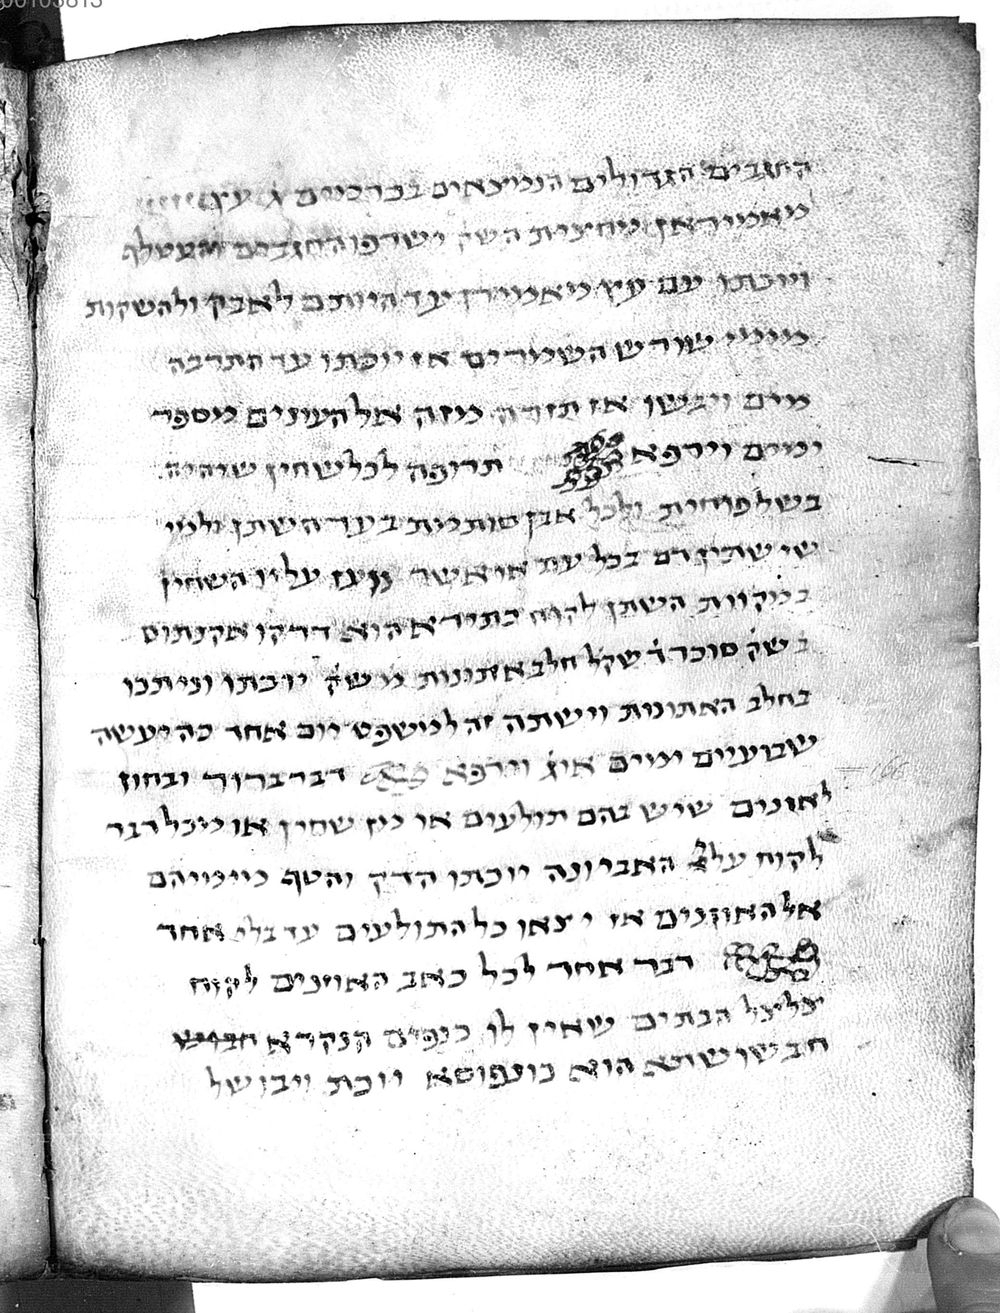 00105813
החגבים הגדולים הנמצאים בכרמים עץ
מאמיראן מחצית השק ישרפו החגבים והעטלף
ויוכתו עם עץ מאמירן עד היותם לאבק ולהשקות
מימי שורש השמרים אז יוכתו עד תתרבה
מים ויבשו אז תזרה מזה אל העינים מספר
ימים וירפא תרופה לכל שחין שיהיה
בשלפוחית ולכל אבן סותמת בעד השתן ולמי
שישתין דם בכל עת או אשר עליו השחין
במקוות השתן לקוח כתירא הוא דרקו אקנתוס
בשק סוכר שקל חלב אתונות שק יוכתו וניתכו
בחלב האתונות וישתה זה למשפט יום אחד כה יעשה
שבועיים ימים וירפא דבר ברור ובחון
לאזנים שיש בהם תולעים או מין שחין או מכל דבר
לקוח עלי האביונה יוכתו הדק והטף מימיהם
אל האוזנים אז יצאו כל התולעים עד בלי אחד
דבר אחר לכל כאב האוזנים לקוח
צלצל הבתים שאין לו כנפים הנקרא
חבשושתא הוא יוכת ויבושל